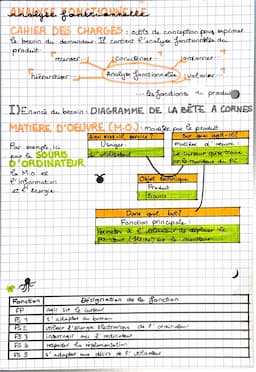 ANALYSE FONCTIONNELLE
CAHIER DES CHARGES : outils de conception pour exprimer
le besoin du demandeur. Il contient l'analyse fonctionnelle du
produit.
recenser caractériser ordonner
hiérarchiser Analyse fonctionnelle valoriser
les fonctions du produit
I) Énoncé du besoin : DIAGRAMME DE LA BÊTE A CORNES
MATIERE D'OEUVRE (M.O.) : modifiée par le produit
Par exemple, ici
pour la SOURIS
D'ORDINATEUR
la M.O. est
l'information
et l'énergie
A qui rend-il service ?
Usager :
L'utilisateur
Sur quoi agit-il ?
Matière d'oeuvre :
Le curseur
du PC.
Objet technique
Produit
Souris
Dans quel but ?
Fonction principale :
Permettre à l'utilisateur de déplacer le
pointeur (flèche) sur le moniteur
Fonction Désignation de la fonction
FP agir sur le curseur
FS 1 s'adapter au bureau
FS 2 utiliser l'énergie électronique de l'ordinateur
FS 3 interragir avec l'ordinateur
FS 4 respecter la réglementation
FS 5 s'adapter aux désirs de l'utilisateur